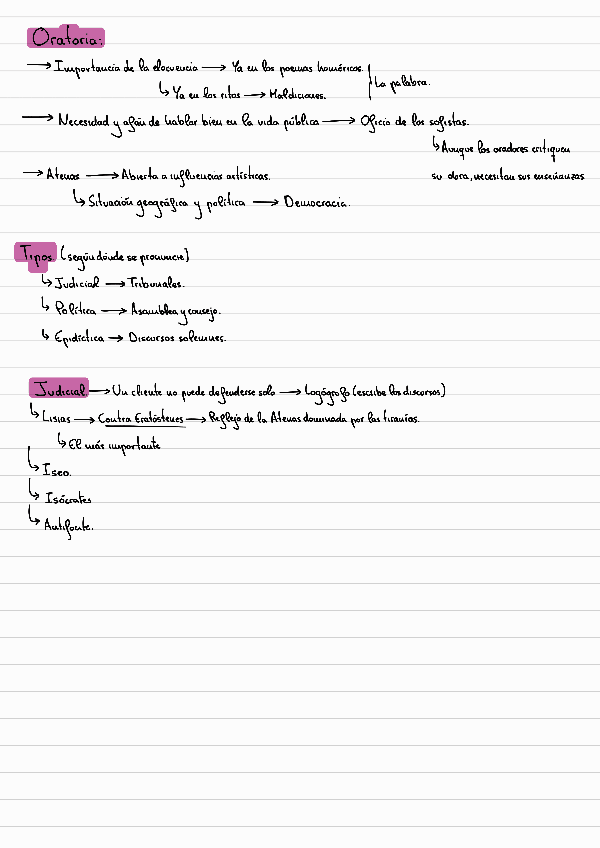 Oratoria:
→ Importancia de la elocuencia → Ya en los poemas homéricos. | La palabra.
↳ Ya en los ritos → Maldiciones.
→ Necesidad y afán de hablar bien en la vida pública → Oficio de los sofistas.
↳ Aunque los oradores critiquen
su obra, necesitan sus enseñanzas
→ Atenas → Abierta a influencias artísticas.
↳ Situación geográfica y política → Democracia.
Tipos (según dónde se pronuncie)
↳ Judicial → Tribunales.
↳ Política → Asamblea y consejo.
↳ Epidíctica → Discursos solemnes.
Judicial → Un cliente no puede defenderse solo → Logógrafo (escribe los discursos)
↳ Lisias → Contra Eratóstenes → Reflejo de la Atenas dominada por las tiranías.
↳ El más importante
↳ Iseo.
↳ Isócrates
↳ Antifonte.